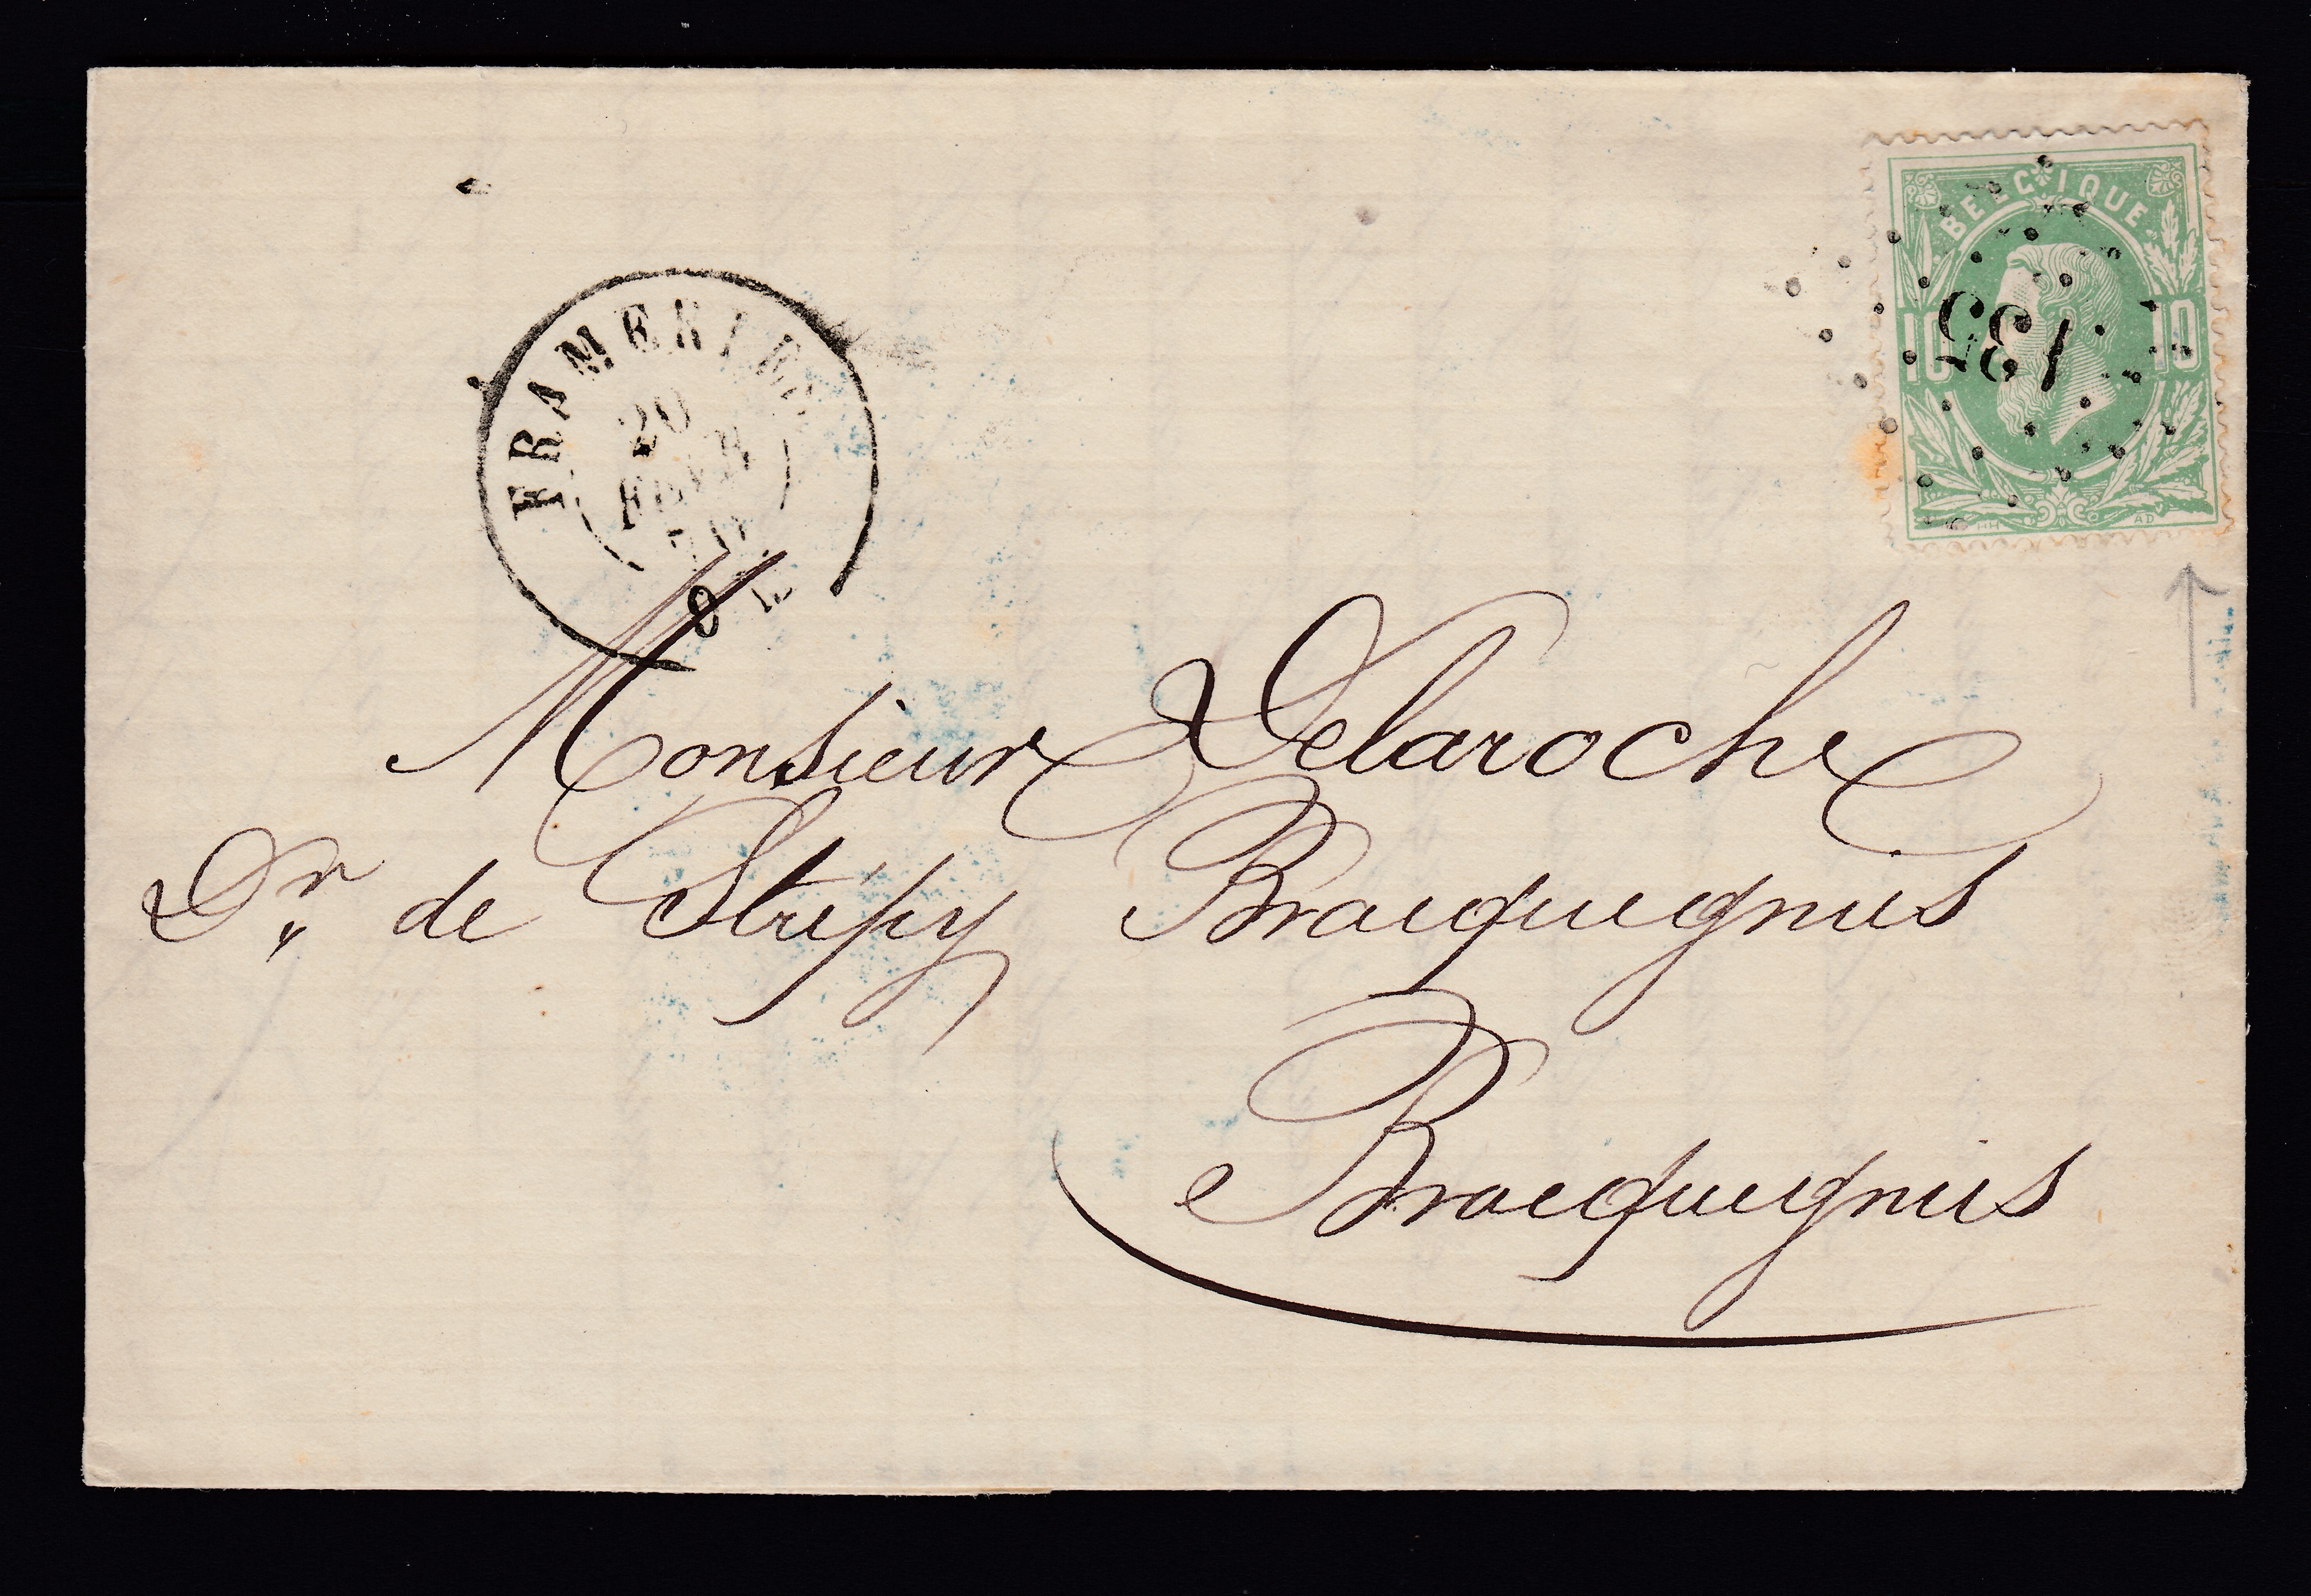 BELGIQUE
10 10
135
HH AD
FRAMERIES
20
FEVR
70
Monsieur Delaroche
Dr. de Strépy Bracquegnies
Bracquegnies